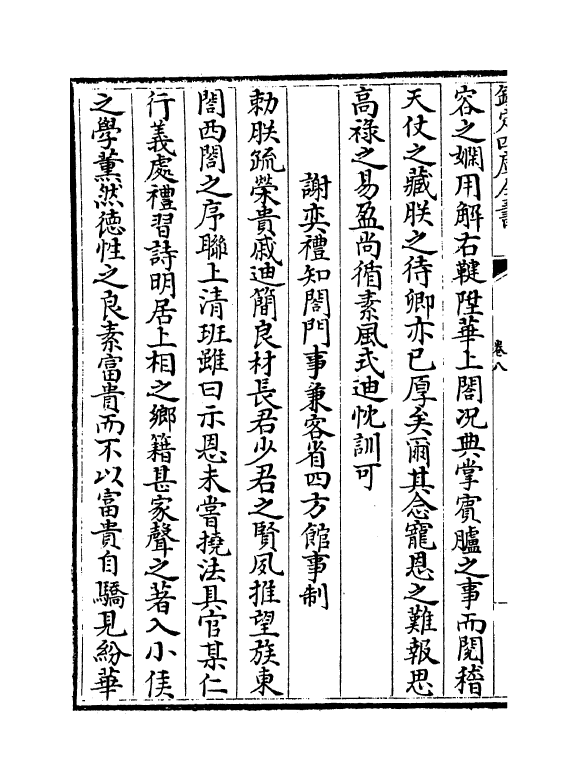 欽定四庫全書
卷八
容之嫻用解右鞬陞華上閤况典掌賔臚之事而閱稽
天仗之藏朕之待卿亦已厚矣爾其念寵恩之難報思
高祿之易盈尚循素風式迪忱訓可
謝奕禮知閤門事兼客省四方館事制
勅朕䟽榮貴戚迪簡良材長君少君之賢夙推望族東
閤西閤之序聯上清班雖曰示恩未嘗撓法具官某仁
行義處禮習詩明居上相之鄉籍甚家聲之著入小侯
之學薰然徳性之良素富貴而不以富貴自驕見紛華